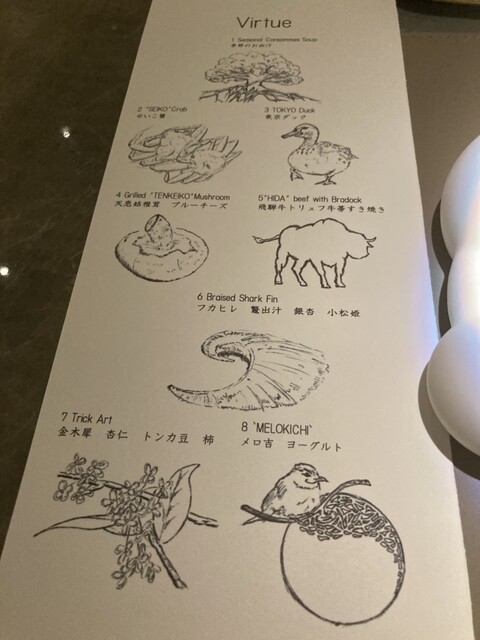 Virtue
1 Seasonal Consommes Soup
季節のお出汁
2 "SEIKO"Crab
せいこ蟹
3 TOKYO Duck
東京ダック
4 Grilled "TENKEIKO"Mushroom
天恵菇椎茸 ブルーチーズ
5"HIDA" beef with Brodock
飛騨牛トリュフ牛蒡すき焼き
6 Braised Shark Fin
フカヒレ 鼈出汁 銀杏 小松菜
7 Trick Art
金木犀 杏仁 トンカ豆 柿
8 `MELOKICHI`
メロ吉 ヨーグルト